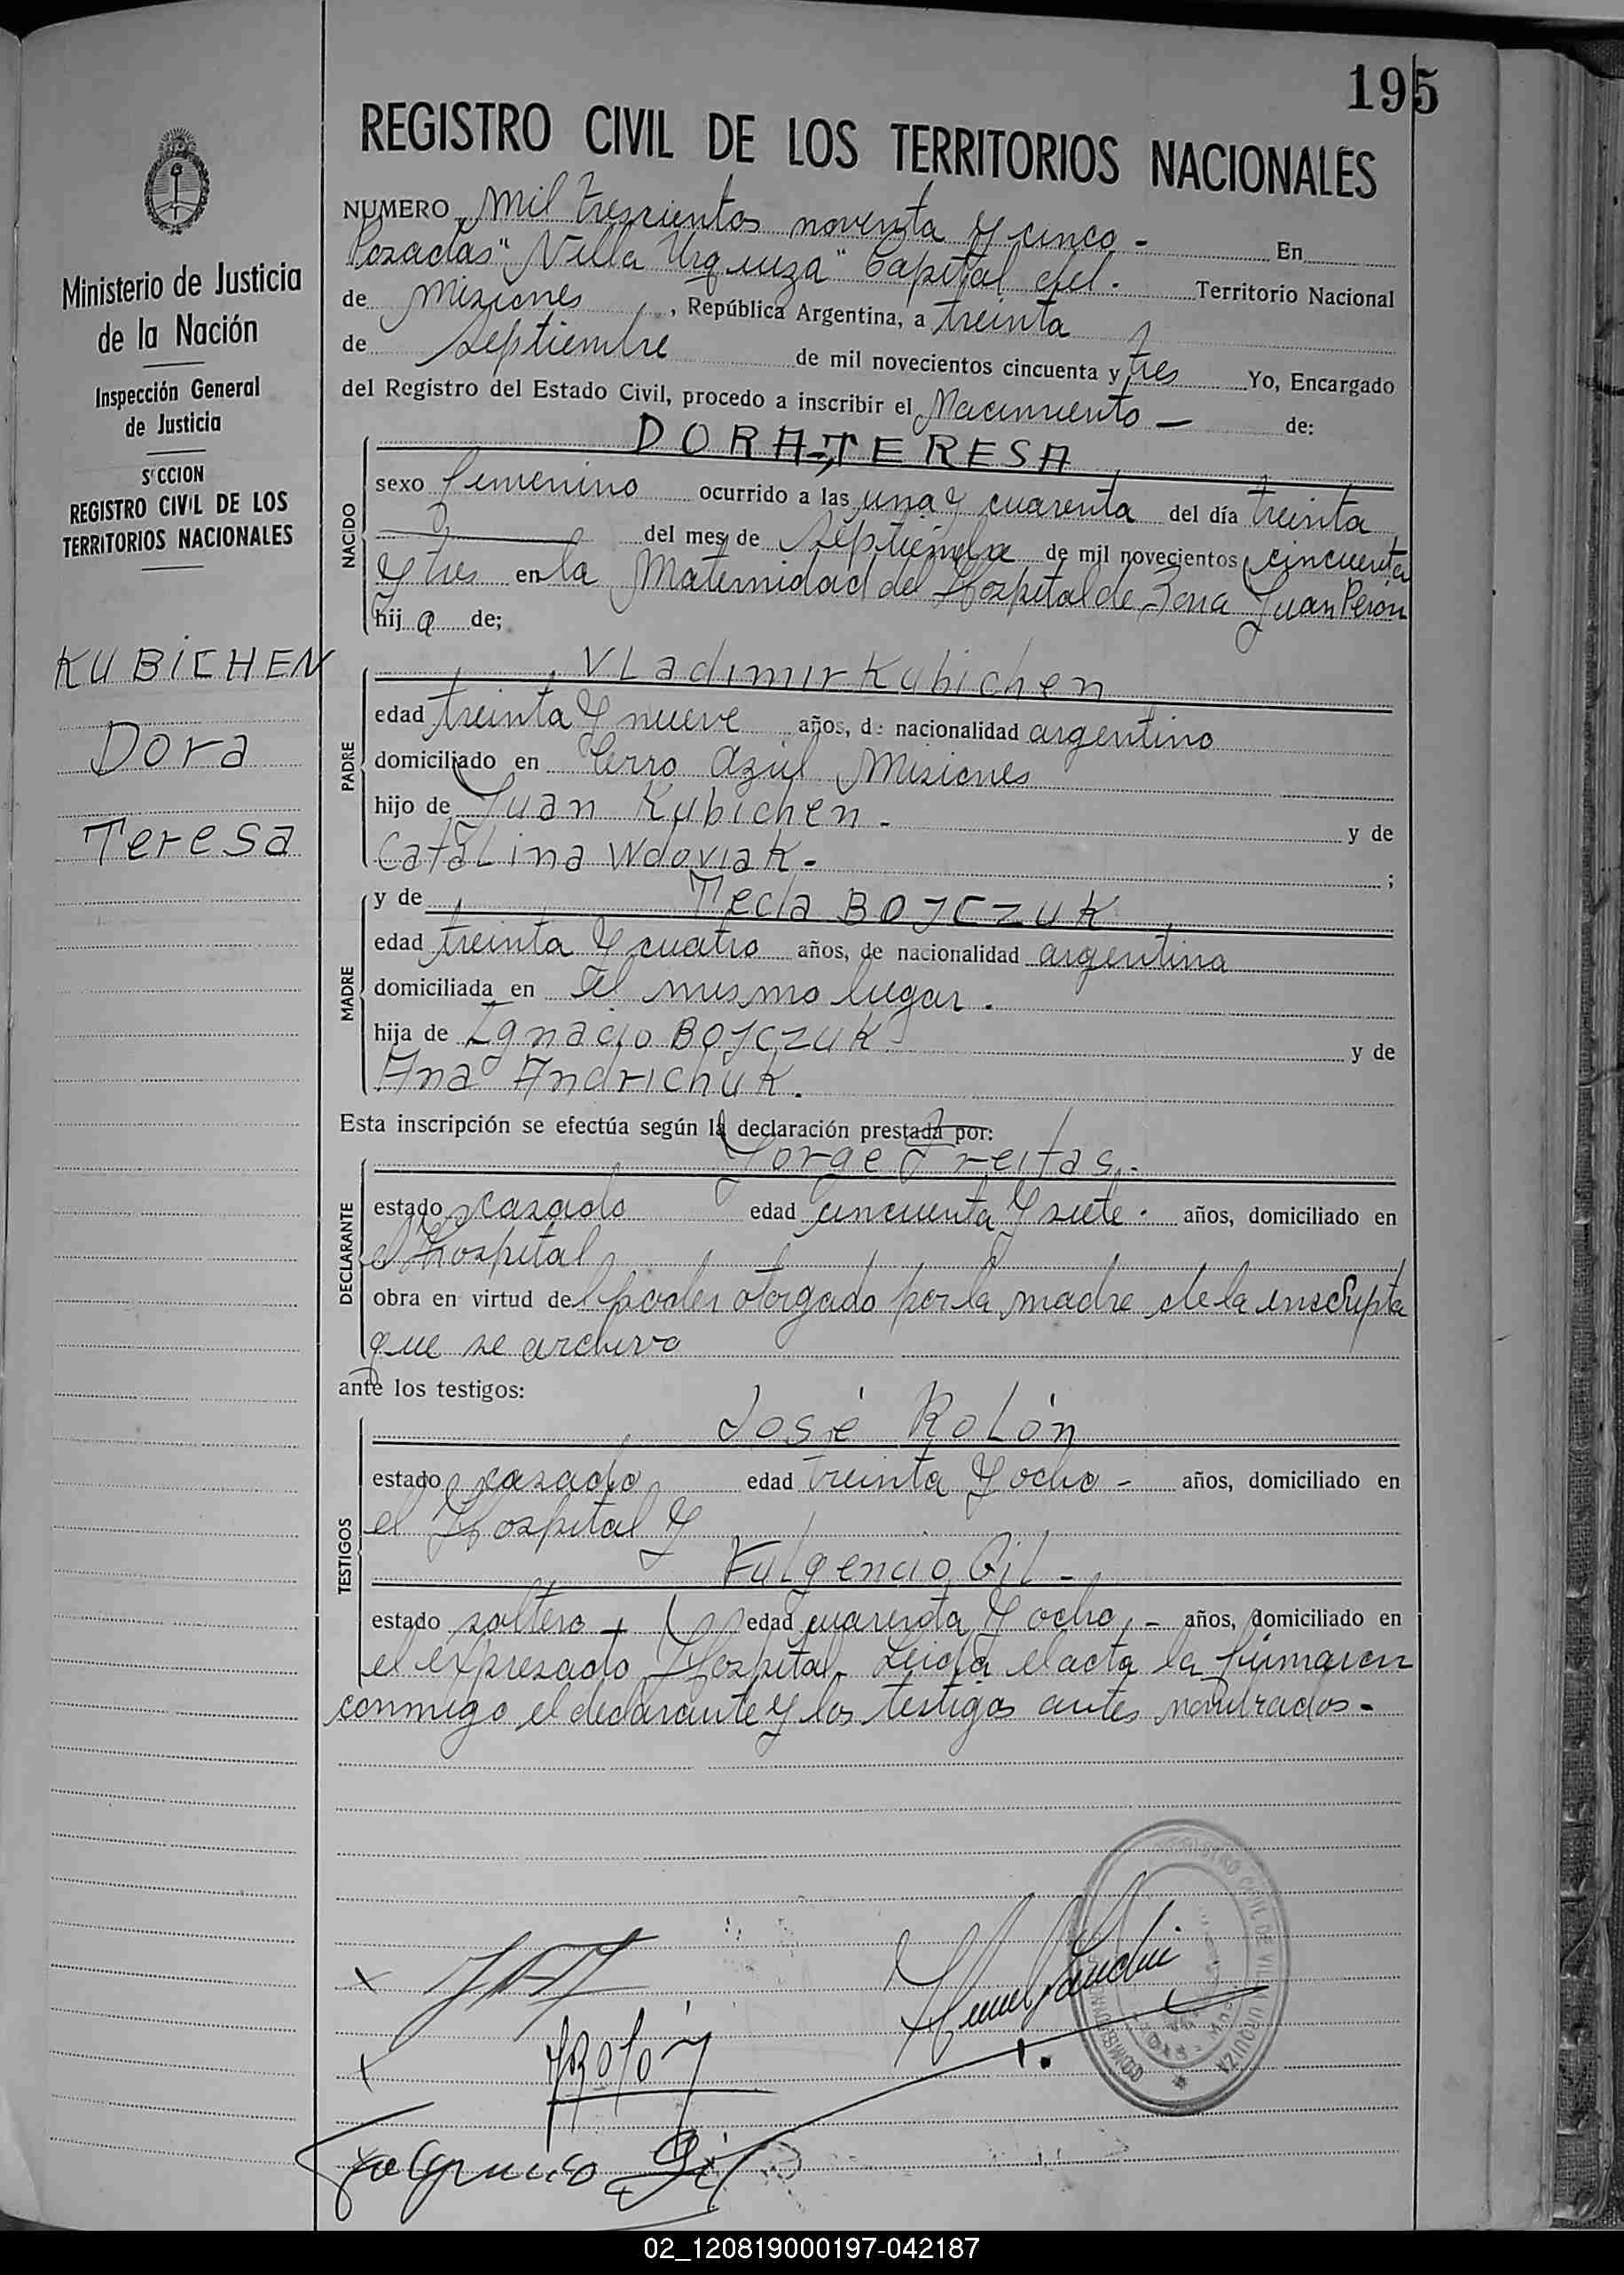 195
REGISTRO CIVIL DE LOS TERRITORIOS NACIONALES
Ministerio de Justicia
de la Nación
Inspección General
de Justicia
S'CCION
REGISTRO CIVIL DE LOS
TERRITORIOS NACIONALES
KUBICHEN
Dora
Teresa
NUMERO mil trescientos noventa y cinco - En
Posadas "Villa Urquiza" Capital del. Territorio Nacional
de Misiones, República Argentina, a treinta
de Septiembre de mil novecientos cincuenta y tres Yo, Encargado
del Registro del Estado Civil, procedo a inscribir el Nacimiento — de:
DORA-TERESA
NACIDO
sexo femenino ocurrido a las una y cuarenta del día treinta
del mes de Septiembre de mil novecientos cincuenta
y tres en la Maternidad del Hospital de Zona Juan Perón
hija de;
PADRE
Vladimir Kubichen
edad treinta y nueve años, de nacionalidad argentino
domiciliado en Cerro Azul Misiones
hijo de Juan Kubichen - y de
Catalina Wdoviak - ;
MADRE
y de Tecla BOJCZUK
edad treinta y cuatro años, de nacionalidad argentina
domiciliada en el mismo lugar.
hija de Ignacio BOJCZUK y de
Ana Andrichuk.
Esta inscripción se efectúa según la declaración prestada por:
DECLARANTE
Jorge Freitas.-
estado casado edad cincuenta y siete. años, domiciliado en
el hospital
obra en virtud del poder otorgado por la madre de la inscripta
que se archivo
ante los testigos:
TESTIGOS
José Rolón
estado casado edad treinta y ocho - años, domiciliado en
el Hospital y
Fulgencio Gil -
estado soltero edad cuarenta y ocho, - años, domiciliado en
el expresado Hospital. Leida el acta la firmaron
conmigo el declarante y los testigos antes nombrados -
JRolón
Fulgencio Gil
REGISTRO CIVIL DE VILLA URQUIZA
02_120819000197-042187